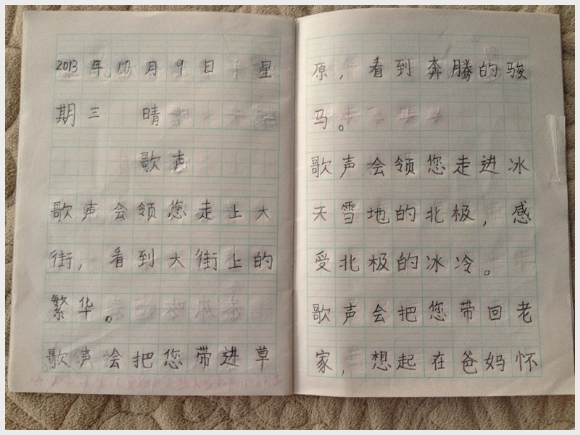 2013年10月9日 星
期三 晴
歌声
歌声会领您走上大
街，看到大街上的
繁华。
歌声会把您带进草
原，看到奔腾的骏
马。
歌声会领您走进冰
天雪地的北极，感
受北极的冰冷。
歌声会把您带回老
家，想起在爸妈怀